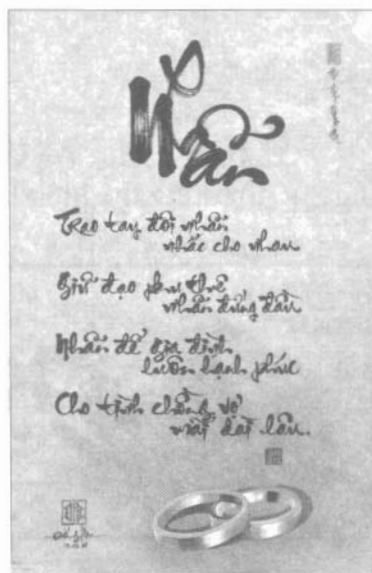 Nhẫn
Trao tay đôi nhẫn
nhắc cho nhau
Giữ đạo phu thê
nhẫn đứng đầu
Nhẫn để gia đình
luôn hạnh phúc
Cho tình chồng, vợ
mãi dài lâu.